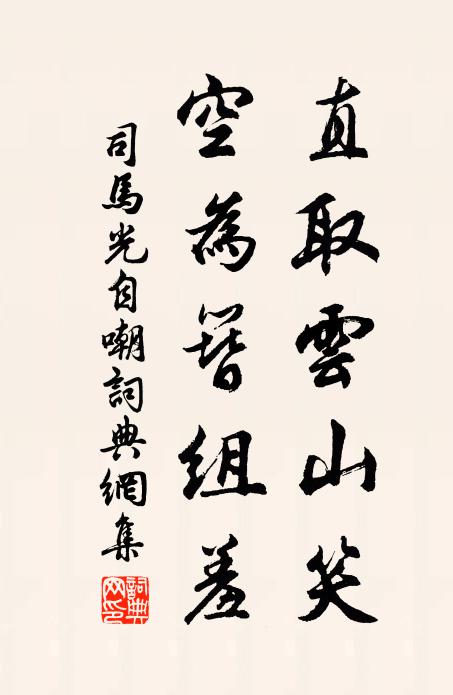 直取雲山笑
空為簪組羞
司馬光自嘲詞典網集
詞典
网印